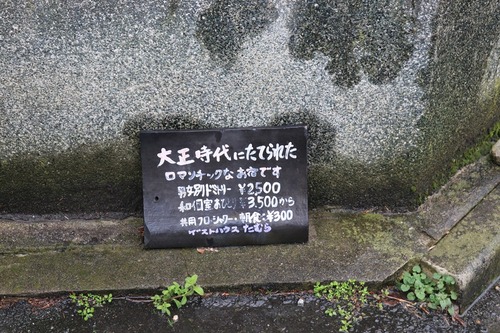 大正時代にたてられた
ロマンチックなお宿です
男女別ドミトリー ¥2500
和個室おひとり ¥3,500から
共同フロ・シャワー・朝食:¥300
ゲストハウス たむら